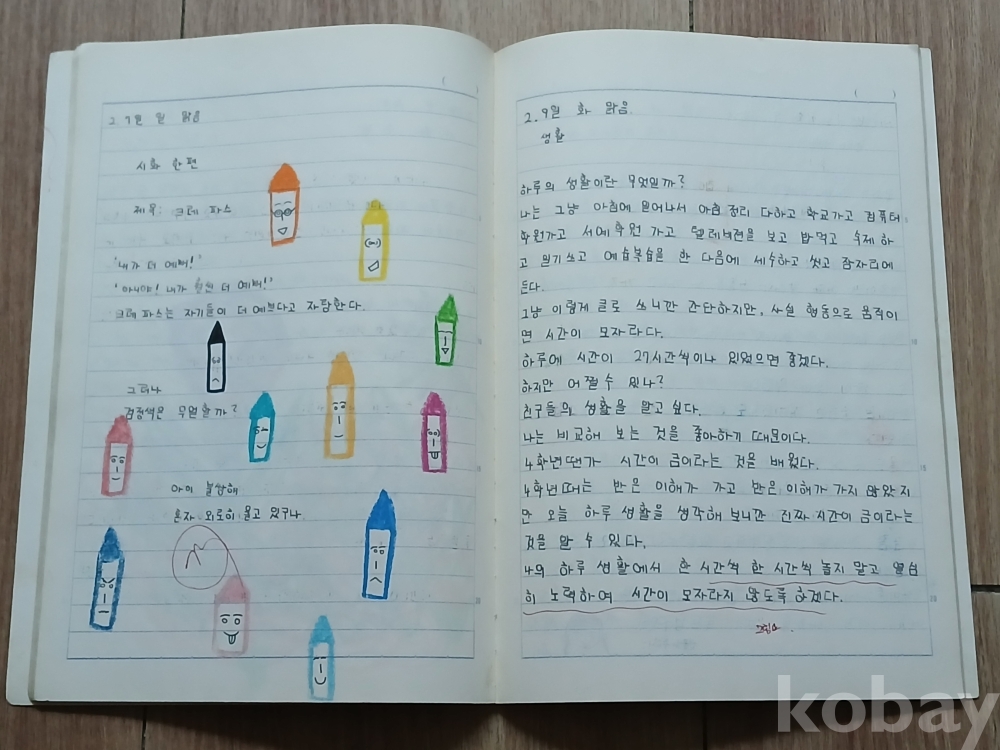 2. 9월 월 맑음
시화 한편
제목: 크레 파스
'내가 더 예뻐!'
'아니야! 내가 훨씬 더 예뻐!'
크레 파스는 자기들이 더 예쁘다고 자랑한다.
그러나
검정색은 무얼할까?
아이 불쌍해
혼자 외로히 울고 있구나.
2. 9월 화 맑음.
생활
하루의 생활이란 무엇일까?
나는 그냥 아침에 일어나서 아침 정리 다하고 학교가고 컴퓨터
학원가고 서예학원 가고 텔레비젼을 보고 밥먹고 숙제 하
고 일기쓰고 예습복습을 한 다음에 세수하고 씻고 잠자리에
든다.
그냥 이렇게 글로 쓰니깐 간단하지만, 사실 행동으로 움직이
면 시간이 모자라다.
하루에 시간이 27시간씩이나 있었으면 좋겠다.
하지만 어쩔 수 있나?
친구들의 생활을 알고 싶다.
나는 비교해 보는 것을 좋아하기 때문이다.
4학년땐가 시간이 금이라는 것을 배웠다.
4학년때는 반은 이해가 가고 반은 이해가 가지 않았지
만 오늘 하루 생활을 생각해 보니깐 진짜 시간이 금이라는
것을 알 수 있다.
나의 하루 생활에서 한 시간씩 한 시간씩 놀지 말고 열심
히 노력하여 시간이 모자라지 않도록 하겠다.
kobay